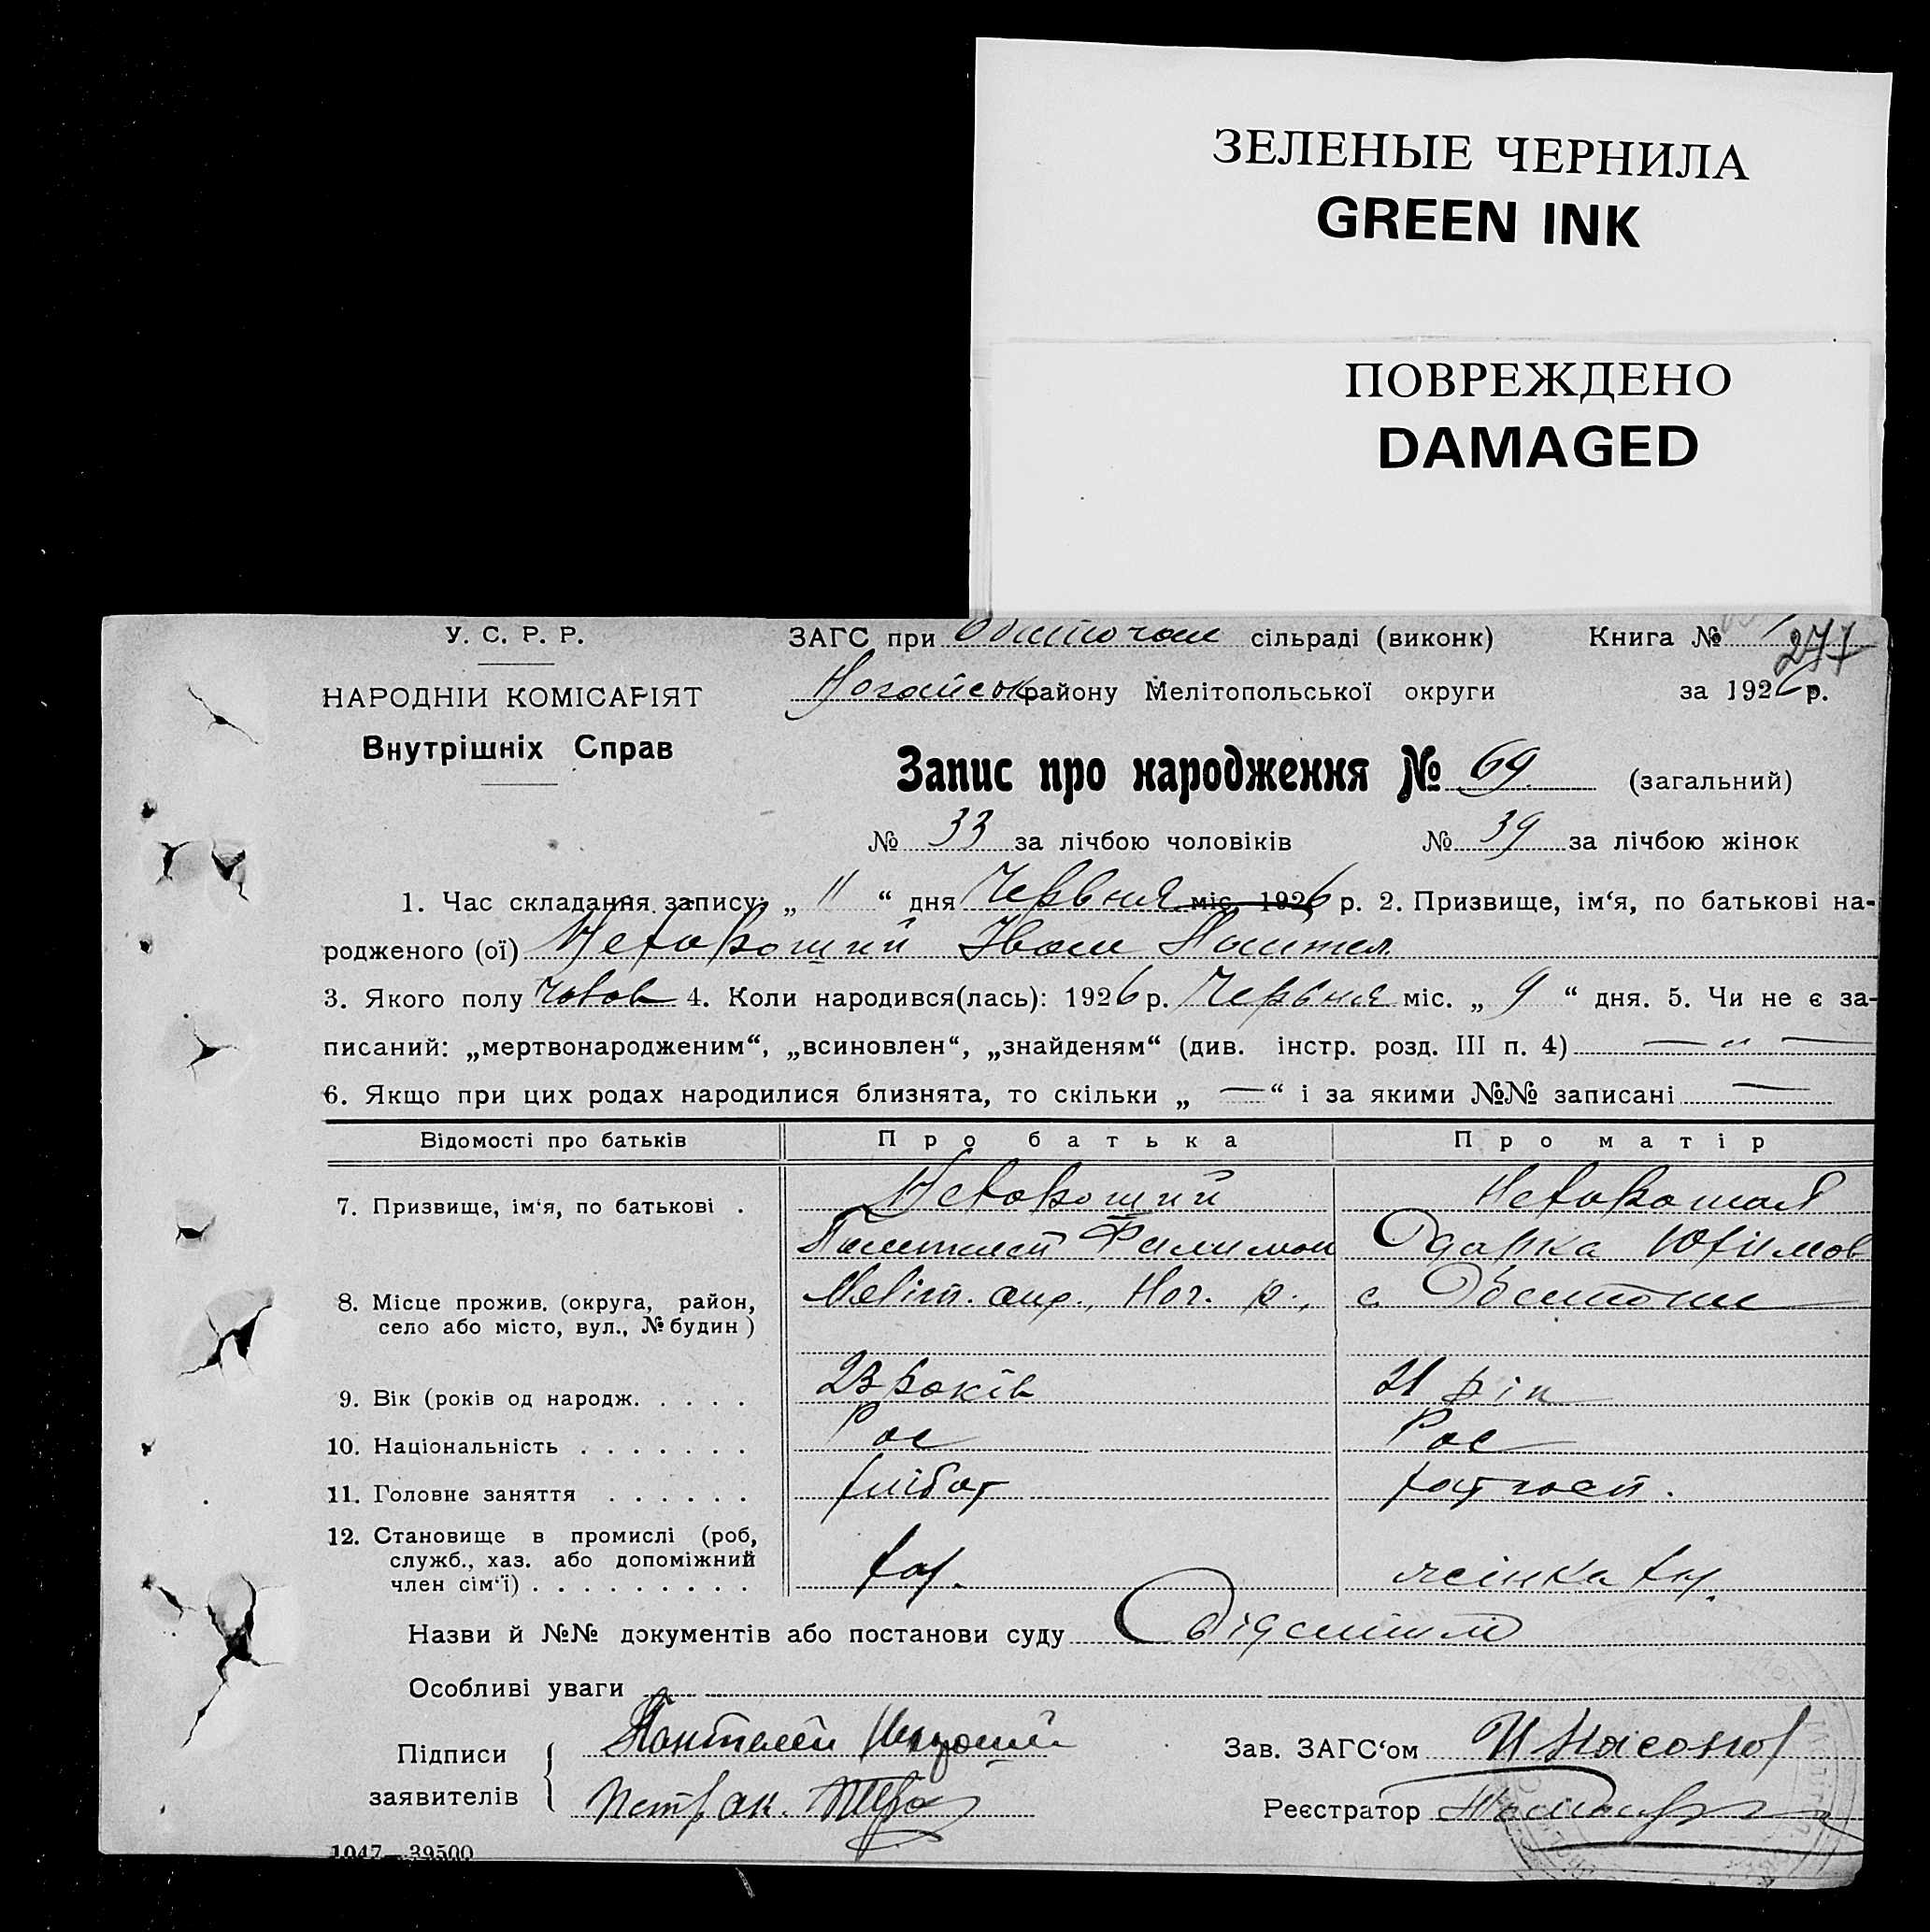 ЗЕЛЕНЫЕ ЧЕРНИЛА
GREEN INK
ПОВРЕЖДЕНО
DAMAGED
У. С. Р. Р.
ЗАГС при сільраді (виконк) Книга №
277
НАРОДНІЙ КОМІСАРІЯТ
Ногайськ району Мелітопольської округи за 1926 р.
Внутрішніх Справ
Запис про народження № 69. (загальний)
№ 33 за лічбою чоловіків № 39 за лічбою жінок
1. Час складання запису: „ 11 “ дня Червня міс. 1926 р. 2. Призвище, ім‘я, по батькові на-
родженого (ої) Нехороший Іван Пантел.
3. Якого полу чолов 4. Коли народився(лась): 1926 р. Червня міс. „ 9 “ дня. 5. Чи не є за-
писаний: „мертвонародженим“, „всиновлен“, „знайденям“ (див. інстр. розд. III п. 4) — „ —
6. Якщо при цих родах народилися близнята, то скільки „ — “ і за якими №№ записані —
Відомості про батьків Про батька Про матір
7. Призвище, ім‘я, по батькові . Нехороший Нехорошая
Пантелей Филимон Одарка Юхимов
8. Місце прожив. (округа, район, Меліт. окр., Ног. р., с. Обиточне
село або місто, вул., № будин)
9. Вік (років од народж. . . . . 23 років 21 рік
10. Національність . . . . . . . Рос Рос
11. Головне заняття . . . . . . хлібор
12. Становище в промислі (роб,
служб., хаз. або допоміжний хаз.
член сім‘ї) . . . . . . . . .
Назви й №№ документів або постанови суду
Особливі уваги
Підписи Пантелей Зав. ЗАГС‘ом
заявителів Реєстратор
1047—39500